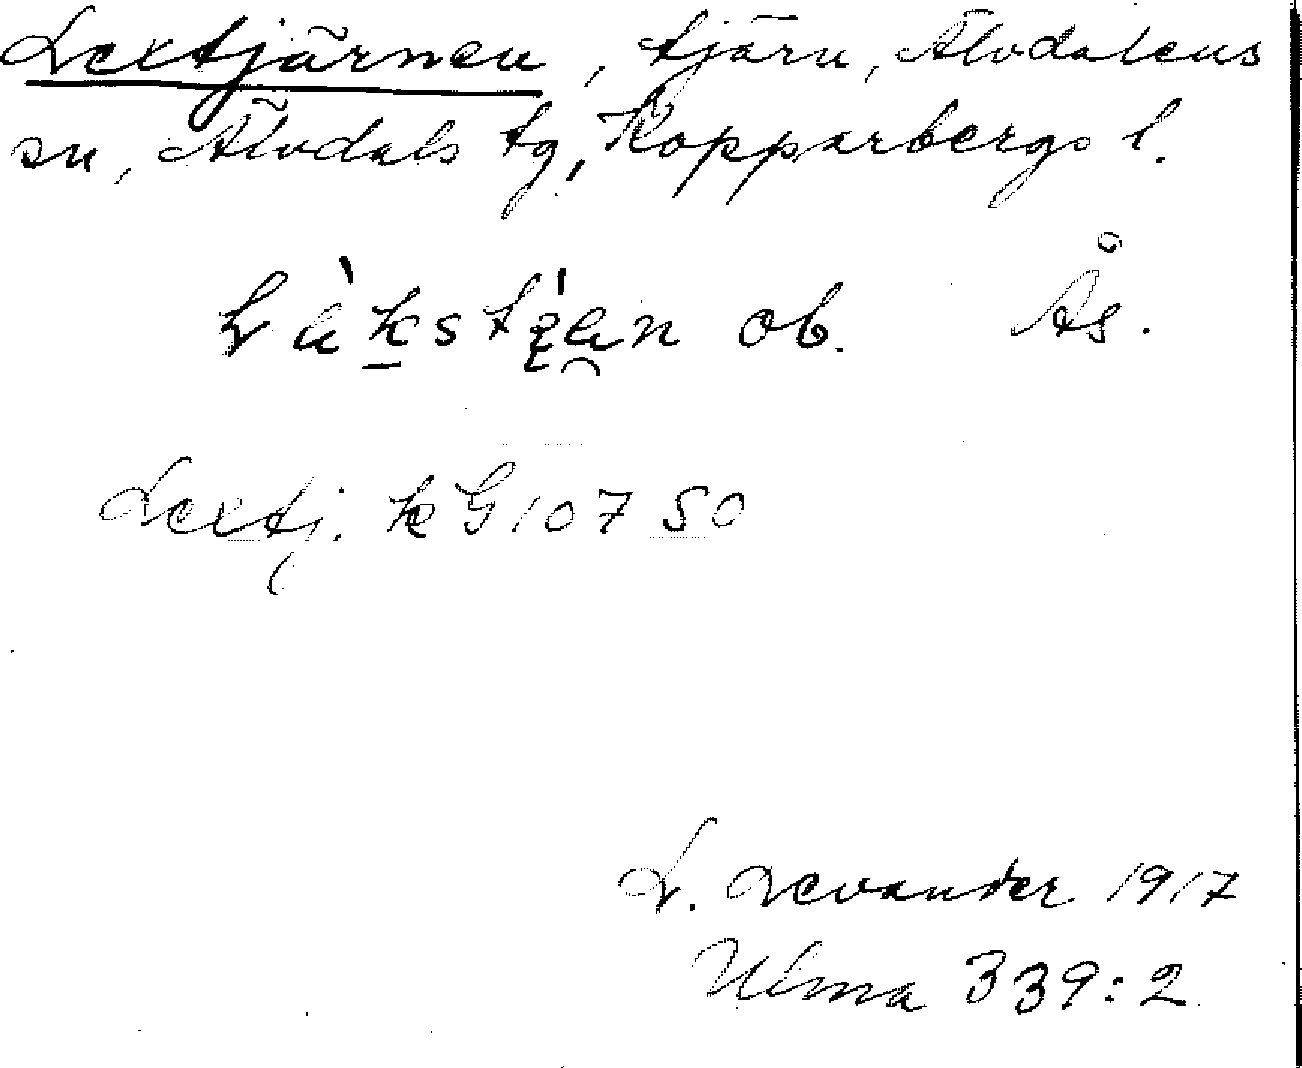 Lextjärnen, tjärn, Älvdalens
sn, Älvdals tg, Kopparbergs l.
ob. Ås.
Lextj. KG 107 SO
L. Levander 1917
Ulma 339:2